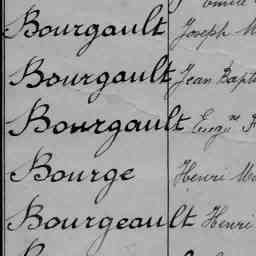 Bourgault Joseph
Bourgault Jean Bapt
Bourgault Eugne
Bourge Henri
Bourgeault Henri